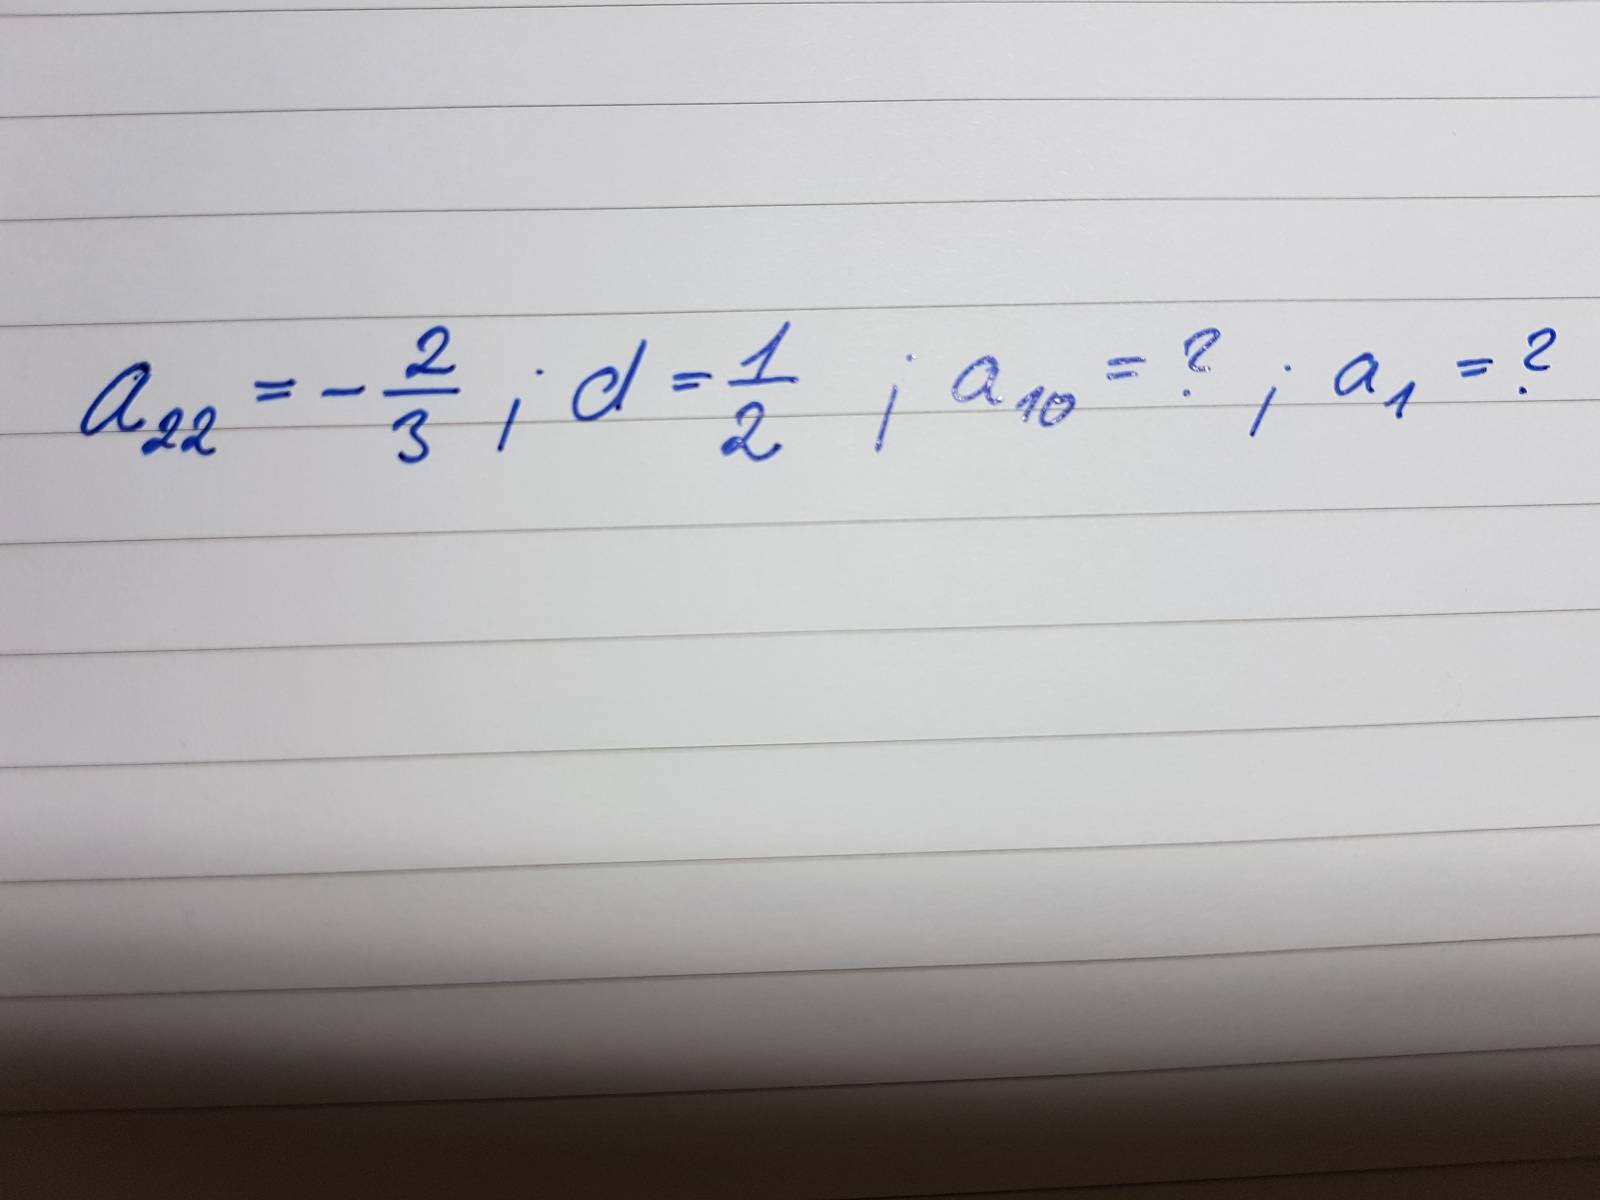 a₂₂ = -2/3 ; d = 1/2 ; a₁₀ = ? ; a₁ = ?